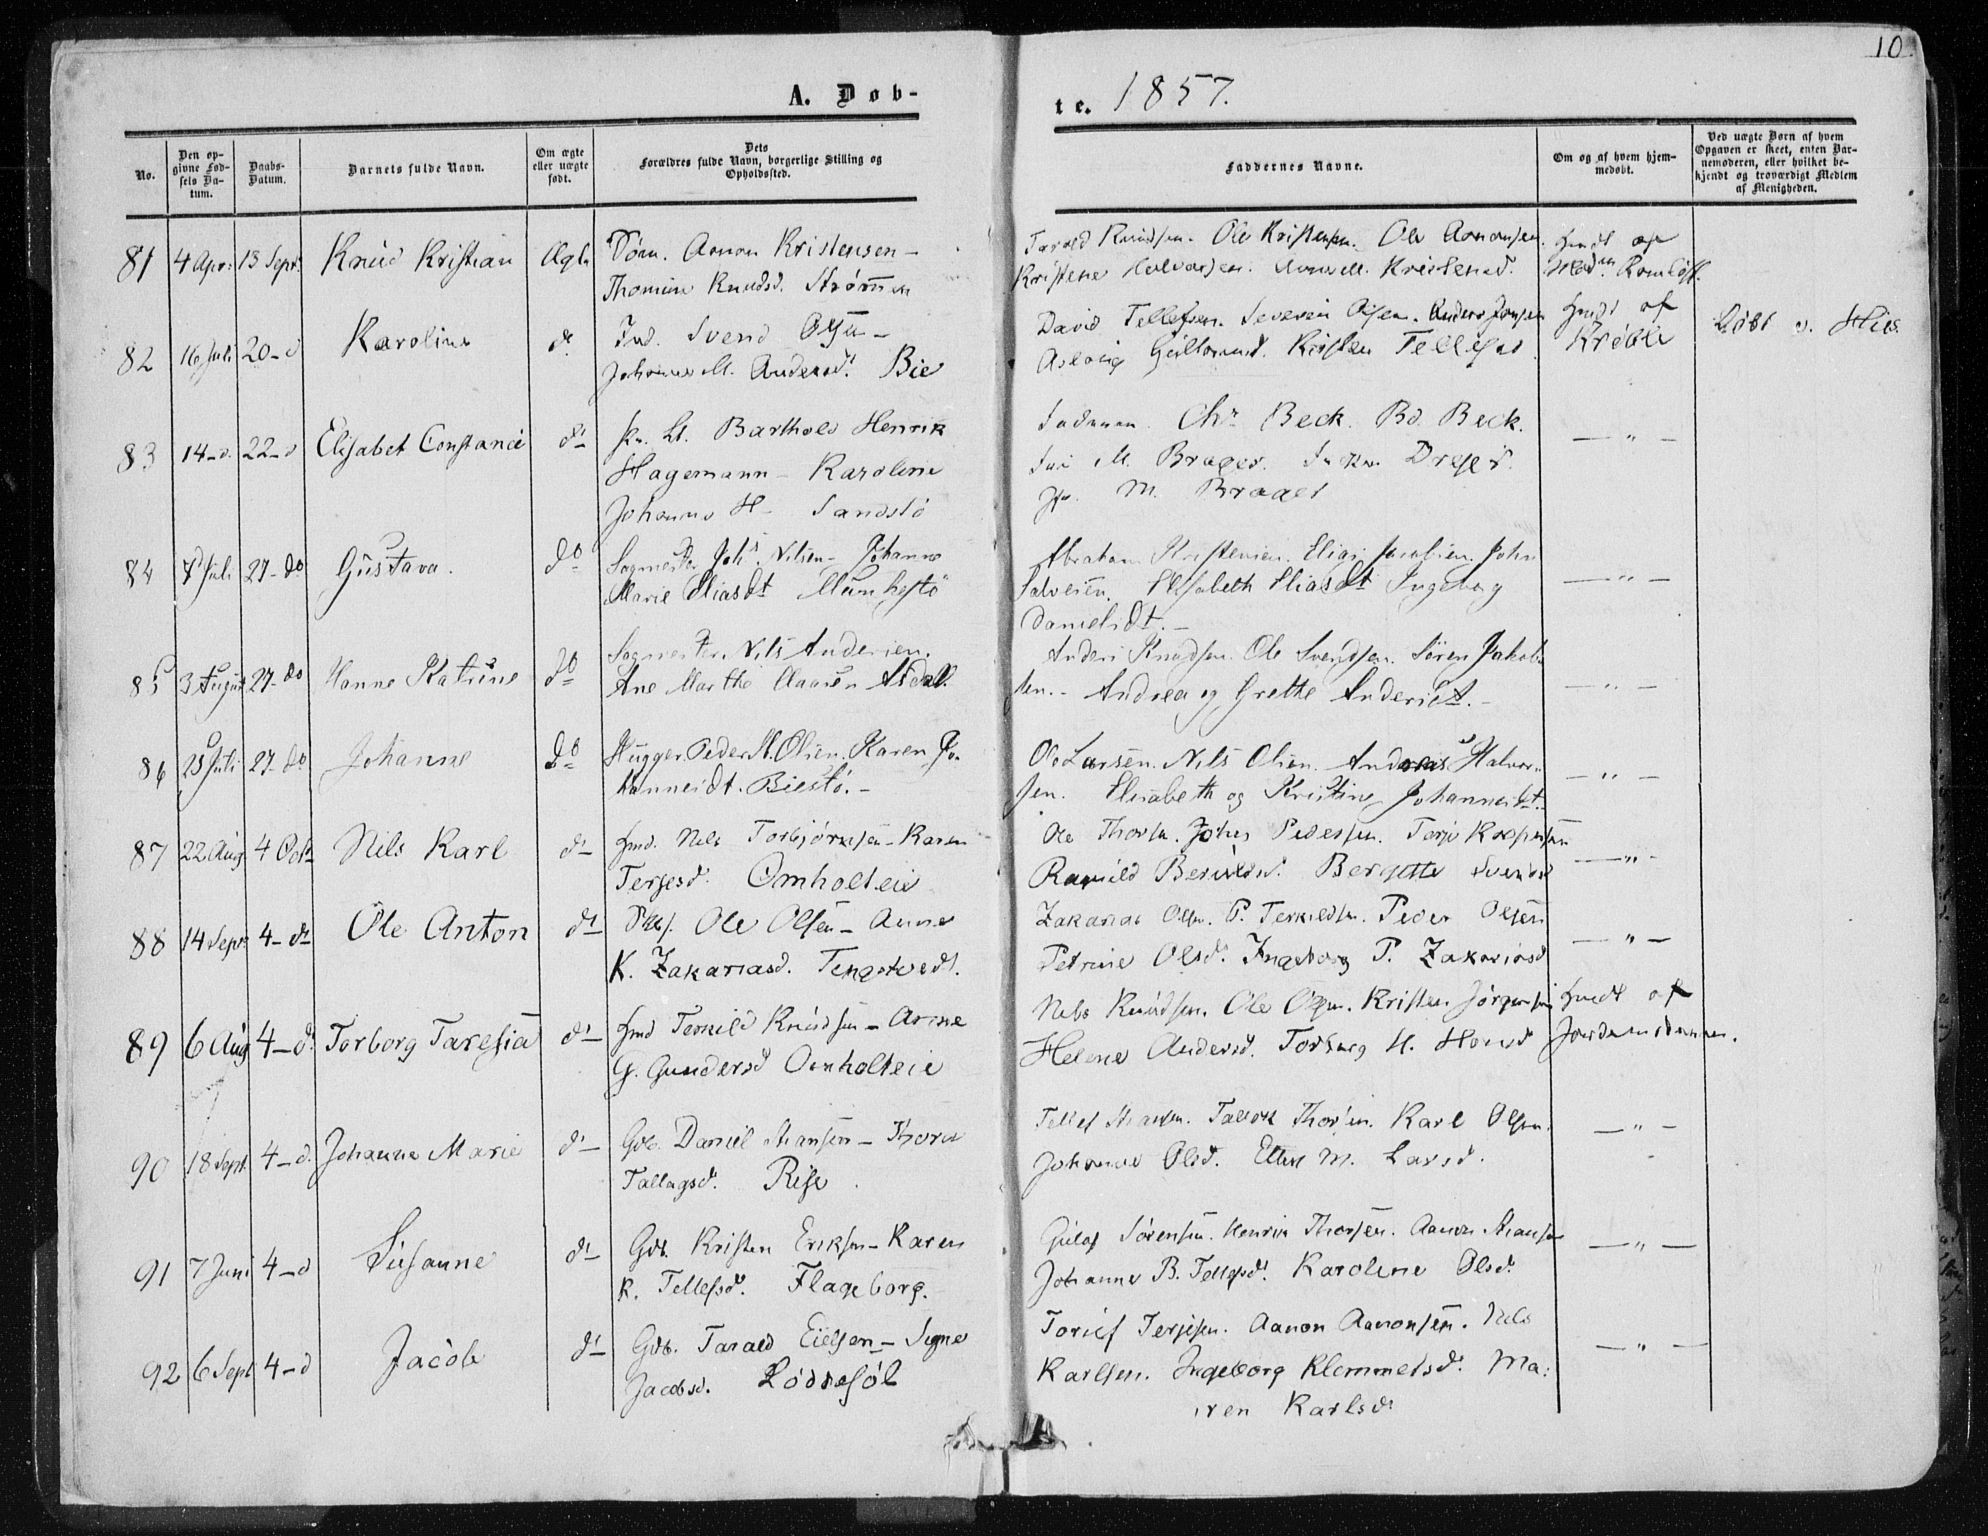 10.
A. Døb-
te. 1857.
No.
Den op-
givne Fød-
sels Da-
tum.
Daabs-
Datum.
Barnets fulde Navn.
Om ægte
eller uægte
født.
Dets
Forældres fulde Navn, borgerlige Stilling og
Opholdssted.
Faddernes Navne.
Om og af hvem hjem-
medøbt.
Ved uægte Børn af hvem
Opgaven er skeet, enten Bar-
nemoderen, eller hvilket be-
kjendt og troværdigt Medlem
af Menigheden.
81 4 Apr: 13 Sept. Knud Kristian Aanon Kristensen -
Thomine Knudsd. Strømm
Knudsen. Ole Kristensen. Ole Aanonsen.
Kristene Halvorsen. Kristensd.
Hmdt af
82 16 Juli 20-d Karoline d. Ind. Svend Olsen -
Johanne M. Andersd. Bie
David Tellefsen. Severin Olsen. Anders Jensen
Aslaug Kristen Tellefsd
Hmdt af
Døbt
83 14-d. 22-d Elisabet Constance d- Lt. Barthold Henrik
Hagemann - Karoline
Johanne H- Sandstø
Chr. Beck. Beck.
M. Brager.
M. Brager
- " -
84 7 Juli 27-do Gustava. do Sagmester Johs. Nilsen - Johanne
Marie Eliasdt
Abraham Kristensen. Elias Jacobsen. John
Salvesen. Elisabeth Eliasdt Ingeborg
Danielsdt. -
- " -
85 3 August 27-do Hanne Katrine do Sagmester Nils Andersen.
Ane Marthe Asdal.
Anders Knudsen. Ole Svendsen. Søren Jakob-
sen. - Andrea og Grethe Andersdt. -
- " -
86 25 Juli 27-do Johanne do Hugger Peder M. Olsen. Karen Jo-
hannesdt. Biestø. -
Ole Larsen. Nils Olsen. Andreas Halvor-
sen. Elisabeth og Kristine Johannesdt.
- " -
87 22 Aug 4 Oct Nils Karl d- Hmd. Nils Torbjørnsen - Karen
Terjesd. Omholteie
Ole Thorsen. Johns Pedersen. Terje Kaspersen
Bergitte Svendsd
- " -
88 14 Sept 4-d Ole Anton d- Ole Olsen - Anne
K. Zakariasd. Tengstvedt.
Zakarias Olsen. P. Terkildsen. Peder Olsen
Petrine Olsd. Ingeborg P. Zakariasd
- " -
89 6 Aug 4-d. Torborg Taresia d- Hmd Terkild Knudsen - Anne
G. Gundersd Omholteie
Nils Knudsen. Ole Olsen. Kristen Jørgensen
Helene Andersd. Torborg H.
Hmdt af
Jordemoderen.
90 18 Sept. 4-d. Johanne Marie d- Gdb. Daniel Hansen - Thora
Tallagsd. Rise.
Tellef Hansen. Tallak Thorsen. Karl Olsen.
Johanne Olsd. Ellen M. Larsd.
- " -
91 7 Juni 4-d Susanne d- Gdb. Kristen Eriksen - Karen
K. Tellefsd. Flageborg.
Sørensen. Henrik Thorsen. Aanon Hansen
Johanne B. Tellefsd. Karolene Olsd.
- " -
92 6 Sept 4-d Jacob d- Gdb. Tarald Eielsen - Signe
Jacobsd. Løddesøl
Torief Terjesen. Aanon Aanonsen. Nils
Karlsen. Ingeborg Klemmetsd. Ma:
ren Karlsd.
- " -